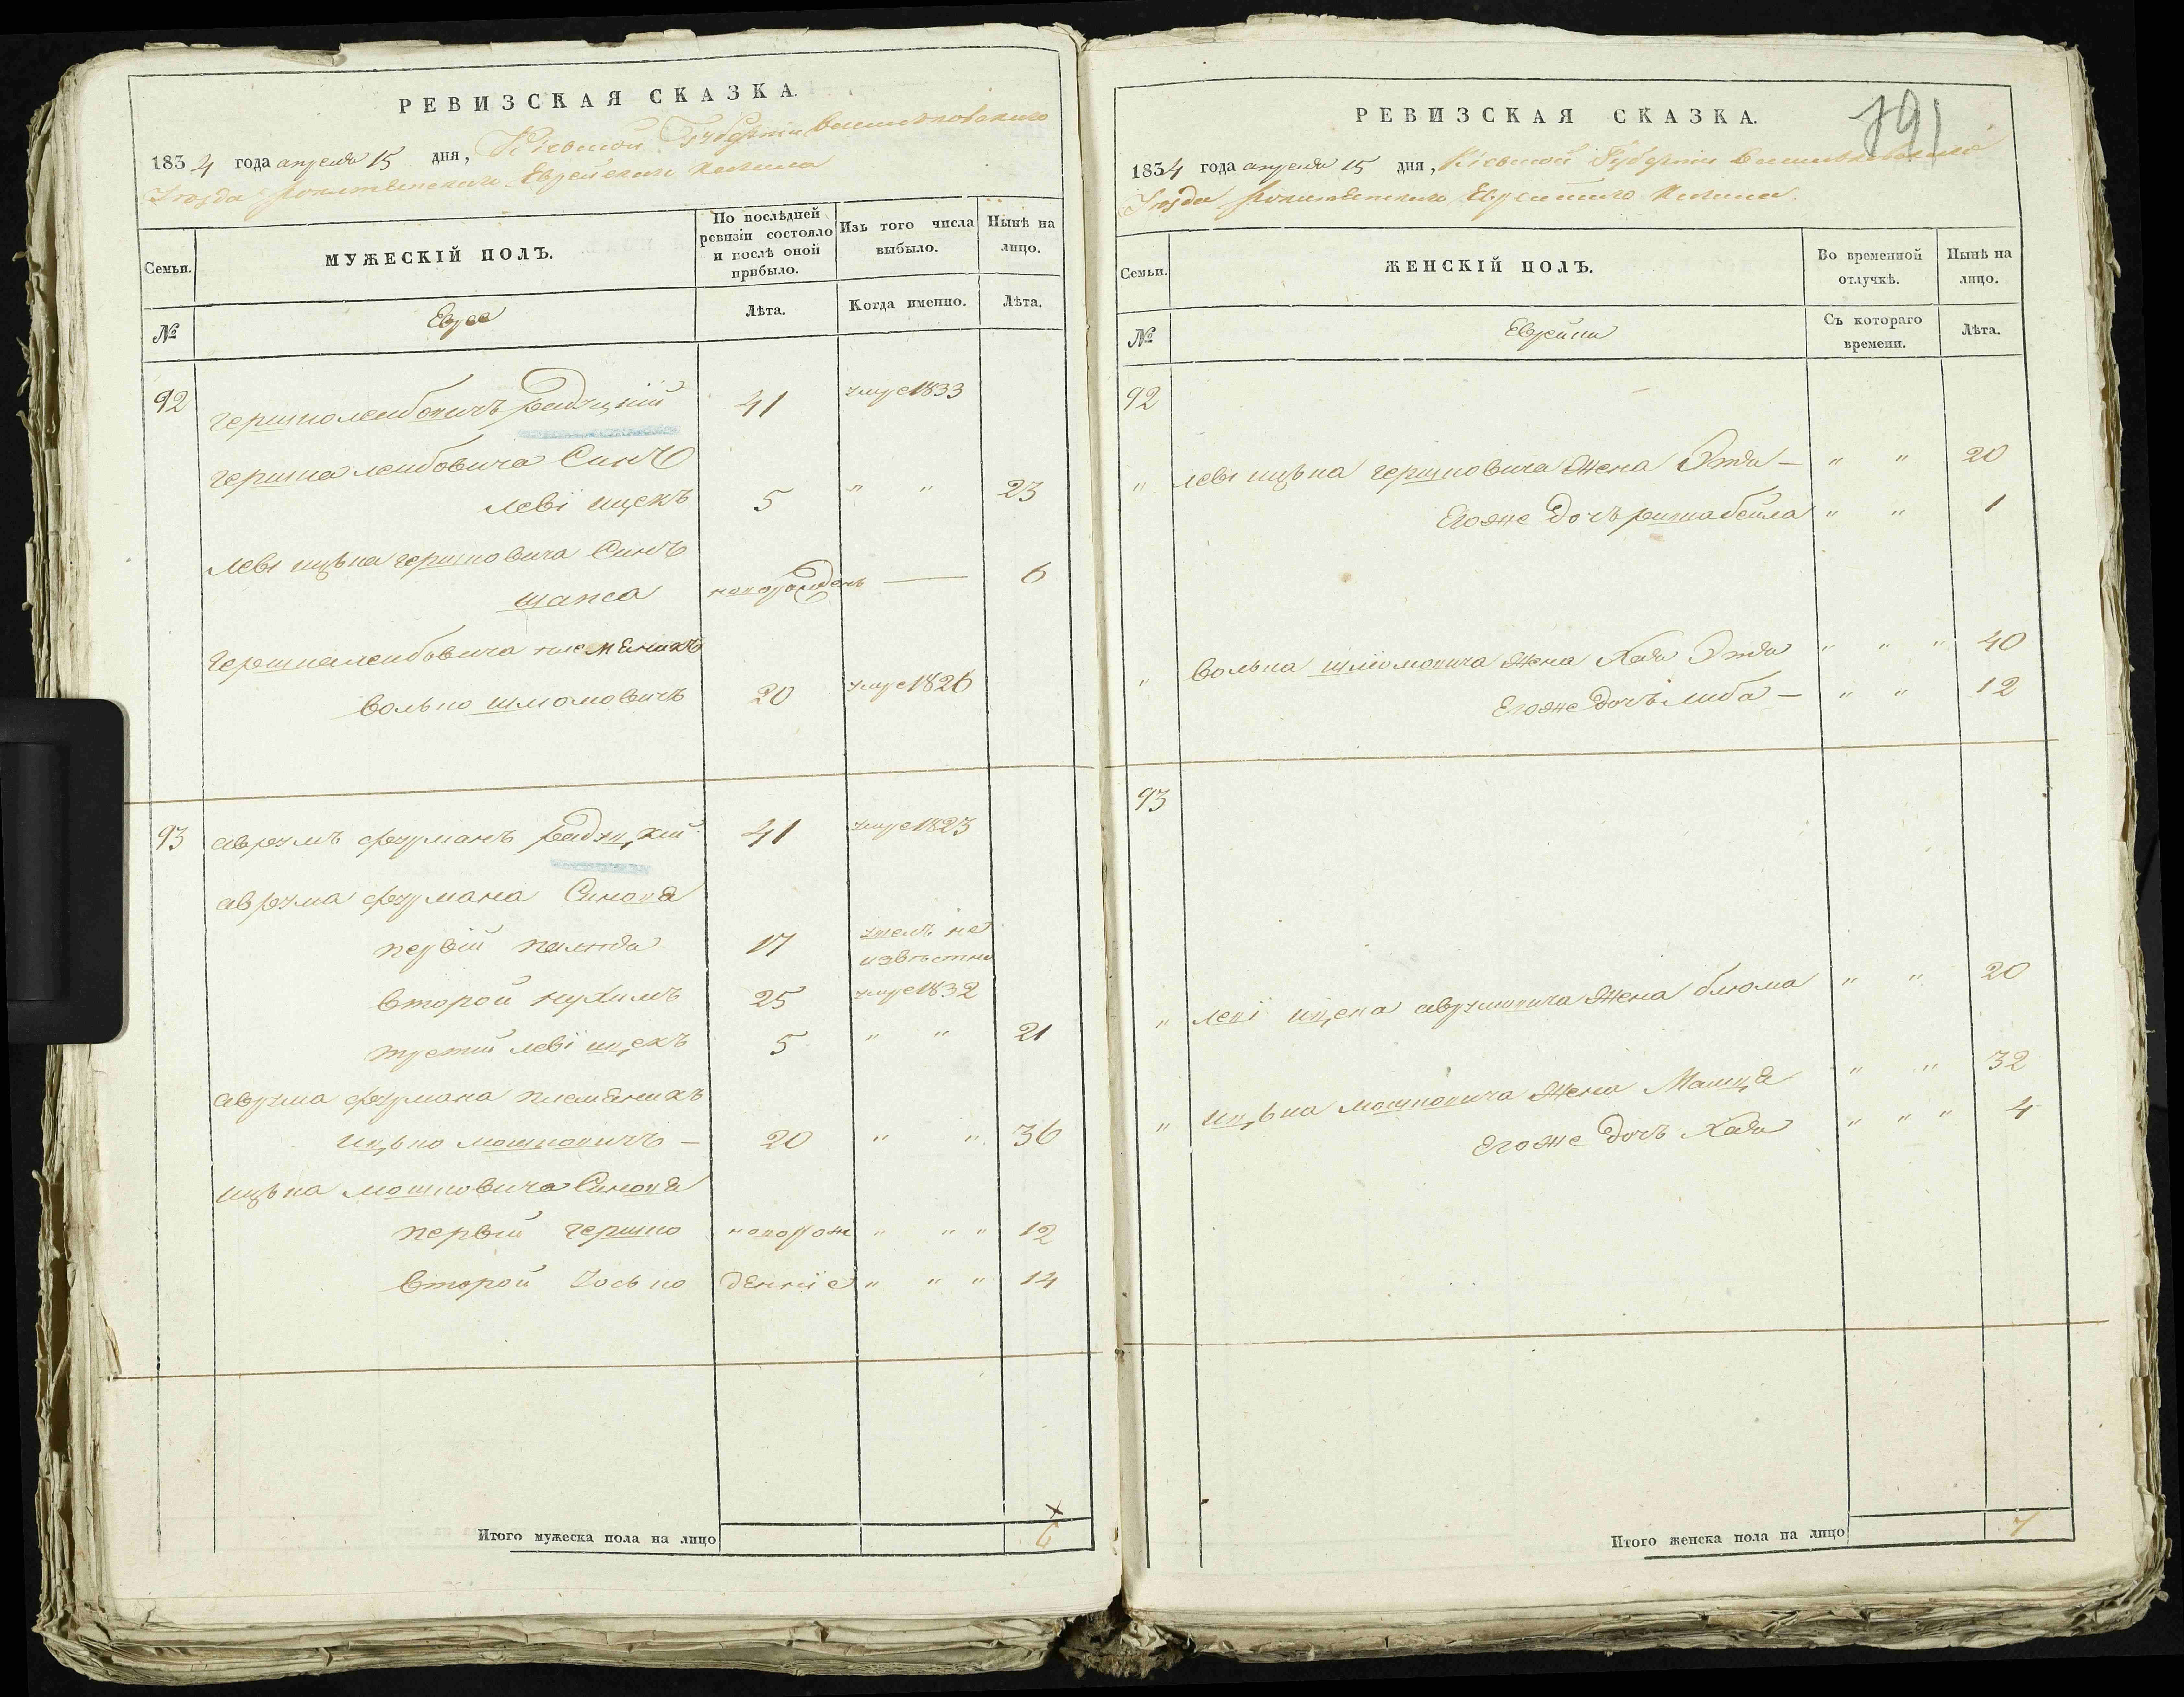 РЕВИЗСКАЯ СКАЗКА.
1834 года апреля 15 дня, Кіевской Губерніи Васильковскаго
Уезда Рокитянского Еврейского Кагала
Семьи.
МУЖЕСКІЙ ПОЛЪ.
По послѣдней ревизіи состояло и послѣ оной прибыло.
Изъ того числа выбыло.
Нынѣ на лицо.
№
Евреи
Лѣта.
Когда именно.
Лѣта.
92 гершко лейбовичъ Радзицкій 41 умре 1833
гершка лейбовича Синъ
леві ицекъ 5 " " 23
леві ицька гершковича Синъ
шапса новорожденъ — 6
гершка лейбовича племеникъ
волько шлиомовичъ 20 умре 1826
93 аврумъ фурманъ Радзицкий 41 умре 1823
аврума фурмана Синова
первій 17 unknown не
извѣстно
второй нухимъ 25 умре 1832
третій леві ицекъ 5 " " 21
аврума фурмана племеникъ
ицько мошковичъ — 20 " " 36
ицька мошковича Синова
первій гершко новорож " " " 12
второй іосько денніе " " " 14
Итого мужеска пола на лицо 6
РЕВИЗСКАЯ СКАЗКА.
791
1834 года апреля 15 дня, Кіевской Губерніи Васильковскаго
Уезда Рокитянского Еврейского Кагала.
Семьи.
ЖЕНСКІЙ ПОЛЪ.
Во временной отлучкѣ.
Нынѣ на лицо.
№
Еврейки
Съ котораго времени.
Лѣта.
92 —
" леві ицька гершковича жена Этя — " " 20
Егоже дочъ ривка бейла " " 1
" волька шлиомовича жена Хая Этя " " " 40
Егоже дочъ либа — " " 12
93
" леві ицека аврумовича жена блюма " " 20
" ицька мошковича жена Малца " " 32
Егоже дочъ Хая " " " 4
Итого женска пола на лицо 7